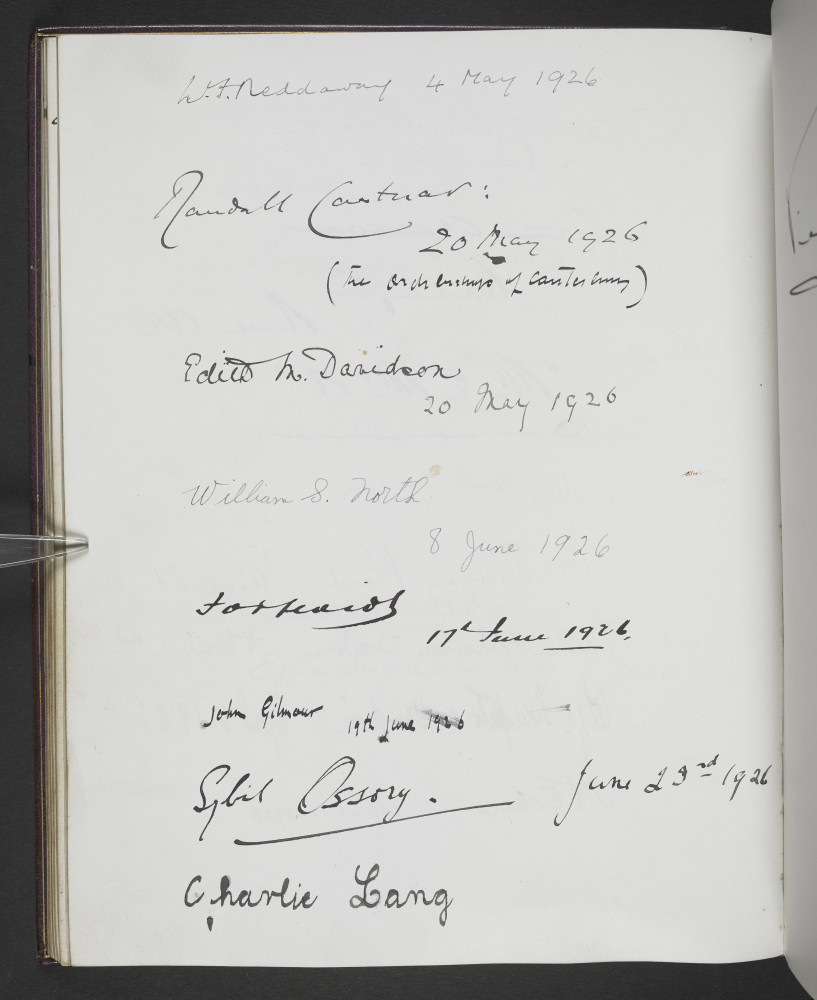 W.F. Reddaway 4 May 1926
Randall Cantuar:
20 May 1926
(The Archbishop of Canterbury)
Edith M. Davidson
20 May 1926
William S. North
8 June 1926
17th June 1926.
John Gilmour 19th June 1926
Sybil Ossory. June 23rd 1926
Charlie Lang